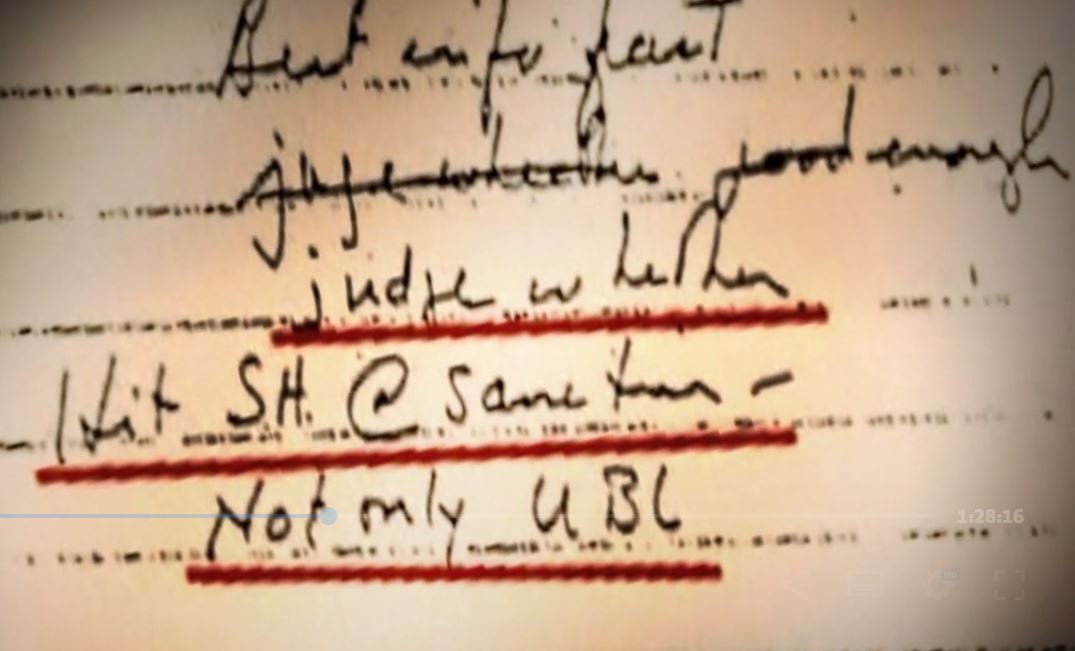 Best info fast
judge whether good enough
judge whether
- Hit S.H. @ same time -
Not only UBL
1:28:16